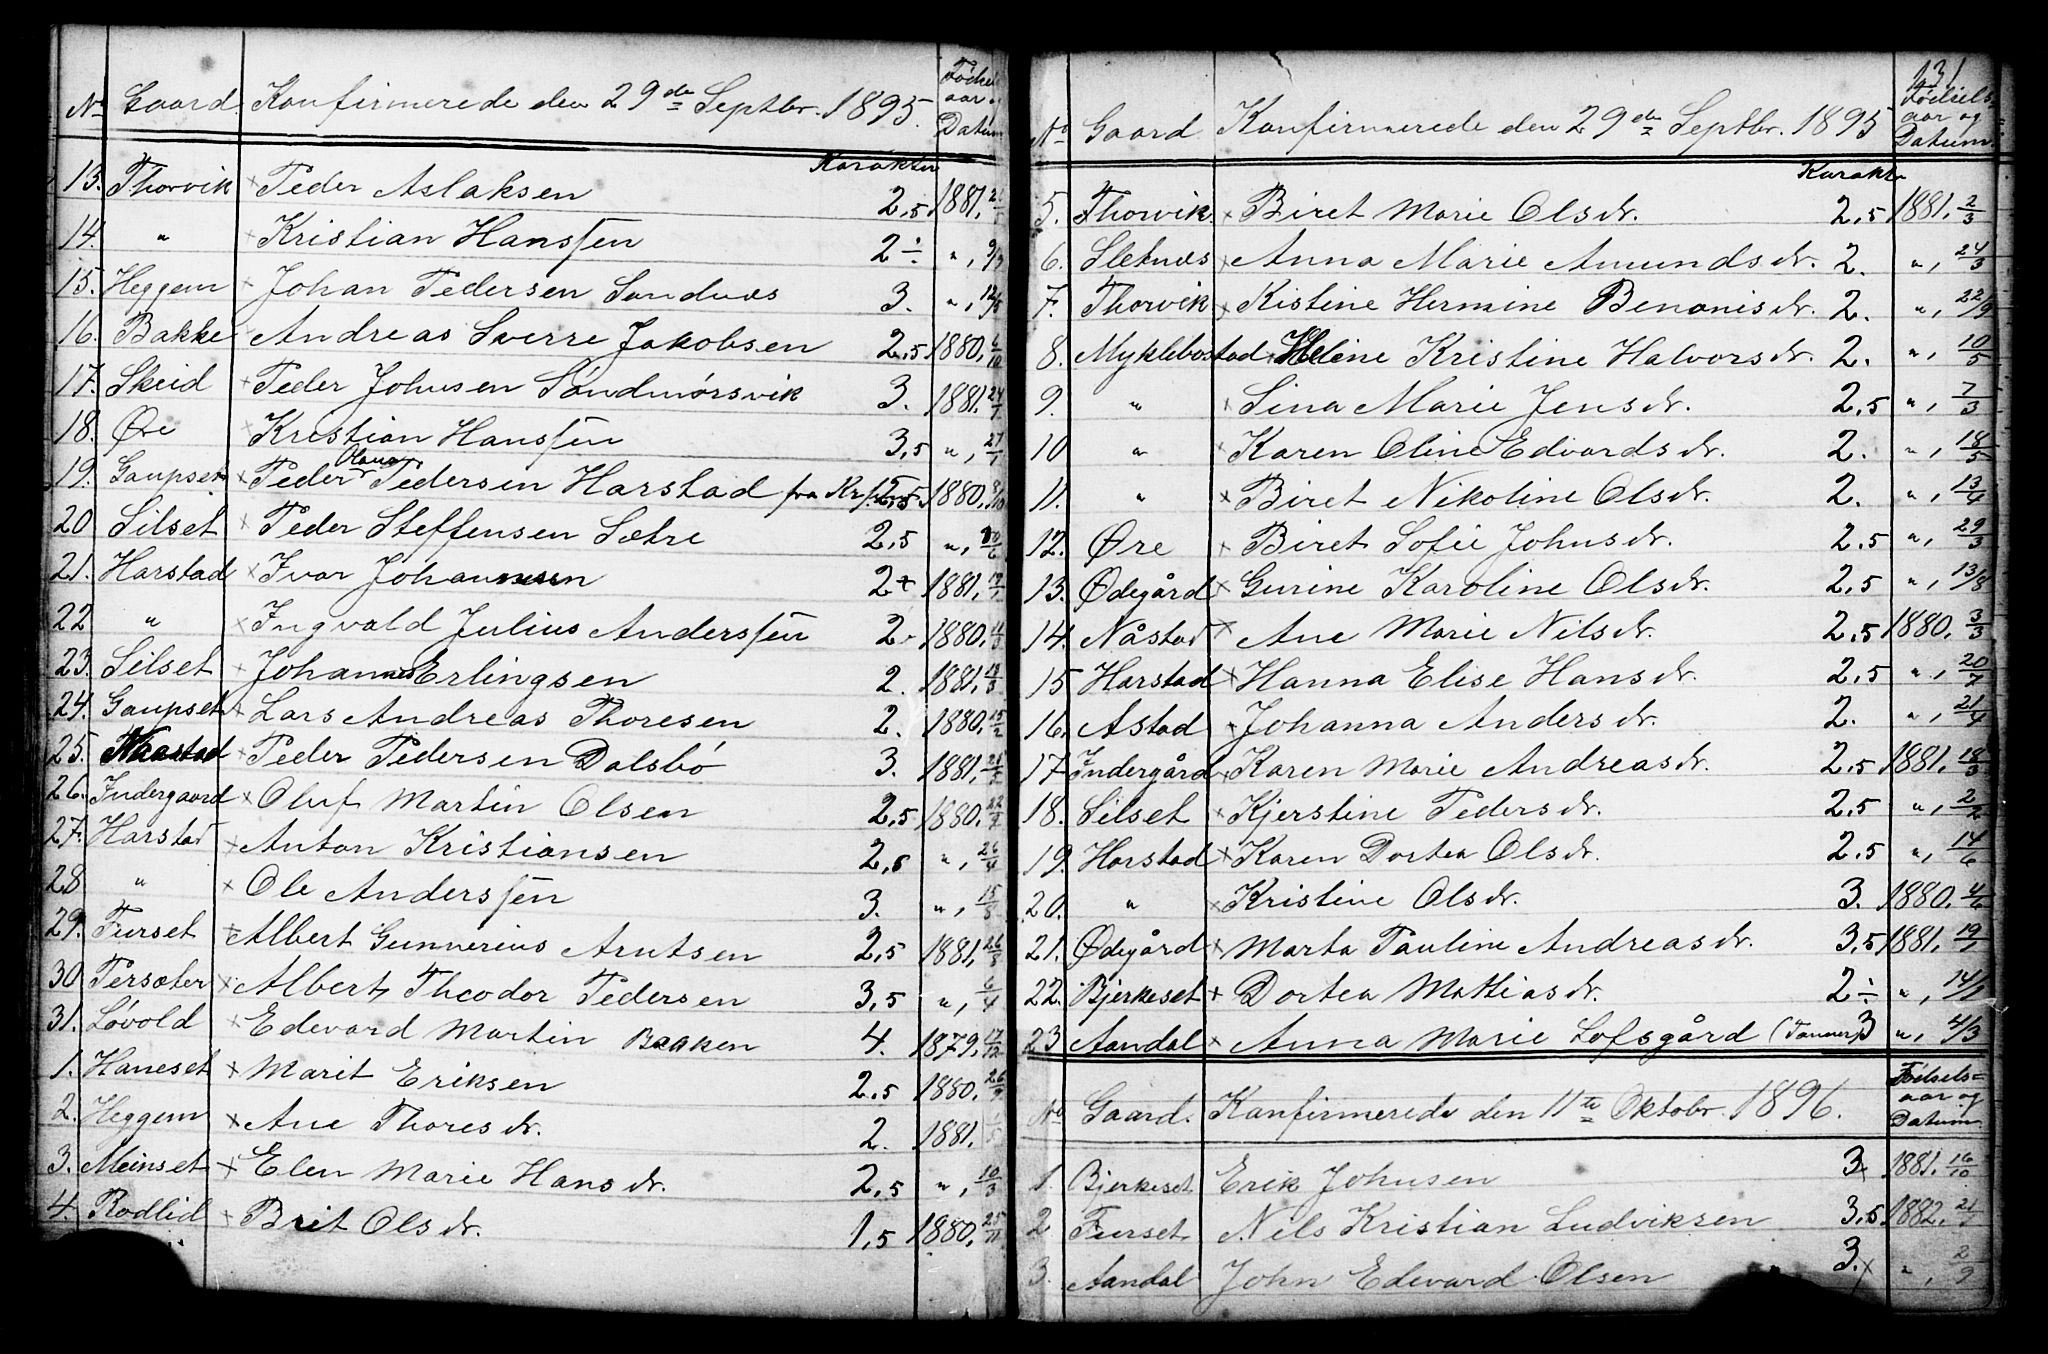 No Gaard. Konfirmerede den 29de Septbr. 1895. Fødsels aar og Datum
Karakter
13. Thorvik × Peder Aslaksen 2,5 1881.
14. " × Kristian Hanssen 2÷ ", 9/7
15. Heggem × Johan Pedersen Sandnes 3. ", 12/5
16. Bakke × Andreas Sverre Jakobsen 2,5 1880. 4/10
17. Skeid × Peder Johnsen Sandmørsvik 3. 1881. 24/7
18. Øre × Kristian Hanssen 3,5 ", 27/7
19. Gaupset × Peder Olaus Pedersen Harstad fra Kr.sund 2,5 1880.
20 Silset × Peder Steffensen Sætre 2,5 ", 30/6
21. Harstad × Ivar Johannesen 2+ 1881. 19/1
22 " × Ingvald Julius Anderssen 2. 1880. 11/3
23. Silset × Johannes Erlingsen 2. 1881. 13/3
24. Gaupset × Lars Andreas Thoresen 2. 1880. 15/2
25. Naastad × Peder Pedersen Dalsbø 3. 1881.
26. Indergaard × Oluf Martin Olsen 2,5 1880. 22/2
27. Harstad × Anton Kristiansen 2,5 ", 26/4
28 " × Ole Anderssen 3. ", 15/8
29. Furset × Albert Gunnerius Arntsen 2,5 1881. 26/8
30 Persæter × Albert Theodor Pedersen 3,5 ", 6/4
31. Løvold × Edevard Martin Baaken 4. 1879. 17/12
1. Haneset × Marit Eriksen 2,5 1880. 26/9
2. Heggem × Ane Thoresdr. 2. 1881.
3. Meinset × Elen Marie Hansdr. 2,5 ", 10/3
4. Rødlid × Brit Olsdr. 1,5 1880. 25/11
131
No Gaard Konfirmerede den 29de Septbr. 1895 Fødsels aar og Datum.
Karakter
5. Thorvik × Biret Marie Olsdr. 2,5 1881. 2/3
6. Sletnes × Anna Marie Amundsdr. 2. ", 24/3
7. Thorvik × Kistine Hermine Benonisdr. 2. ", 22/9
8. Myklebostad × Heline Kristine Halvorsdr. 2. ", 10/5
9. " × Sina Marie Jensdr. 2,5 ", 7/3
10 " × Karen Oline Edvardsdr. 2. ", 18/5
11. " × Biret Nikoline Olsdr. 2. ", 13/4
12. Øre × Biret Sofie Johnsdr. 2,5 ", 29/3
13. Ødegård × Gurine Karoline Olsdr. 2,5 ", 13/8
14. Nåstad × Ane Marie Nilsdr. 2,5 1880. 3/3
15 Harstad × Hanna Elise Hansdr. 2,5 ", 20/7
16. Astad × Johanna Andersdr. 2. ", 21/4
17 Indergård × Karen Marie Andreasdr. 2,5 1881. 18/3
18. Silset × Kjerstine Pedersdr. 2,5 ", 2/2
19. Harstad × Karen Dortea Olsdr. 2,5 ", 14/6
20. " × Kristine Olsdr. 3. 1880. 4/6
21. Ødegård × Marta Pauline Andreasdr. 3,5 1881. 19/1
22. Bjerkeset × Dortea Mathiasdr. 2÷ ", 14/1
23 Aandal × Anna Marie Lofsgård 3 ", 4/3
No Gaard. Konfirmerede den 11te Oktobr. 1896. Fødsels= aar og Datum
1. Bjerkeset Erik Johnsen 3. 1881. 16/10
2 Furset Nils Kristian Ludviksen 3,5 1882.
3. Aandal John Edevard Olsen 3. × ", 2/9